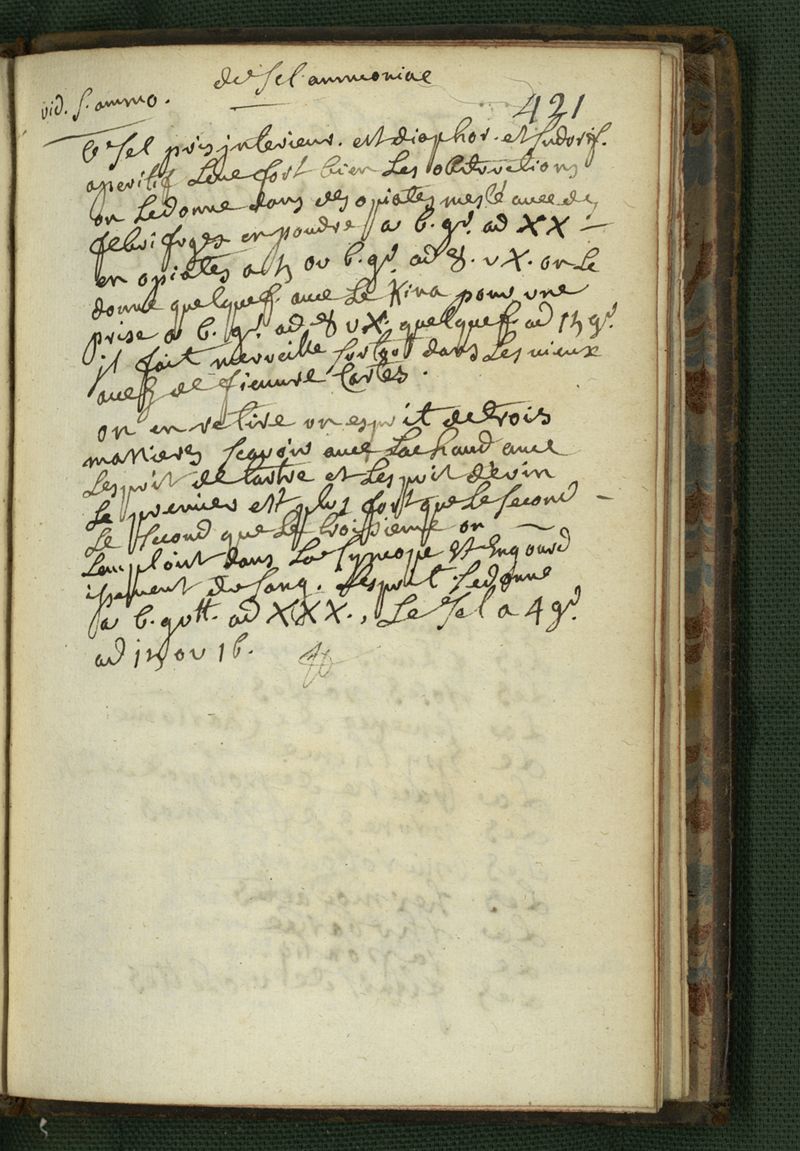 de Sel ammoniac
vid. S. ammo.
421
Ce Sel pris jnterieur. est diaphor. et Sudorif.
aperitif Leve fort bien Les obstructions
on Le donne dans des opiates meslé avec des
febrifuges en poudre a 6. gr. ad XX
en opiates a 15 ou 6. gr. ad 8. u X. on Le
donne quelquef. avec Le Kina pour une
prise a 6. gr. ad 8 u X. quelquef. ad 15 gr.
jl fait merveille surtout dans Les vieux
de fievvre Cartes.
on en retire un esprit de trois
manieres Scavoir avec La chaud avec
Lesprit de tartre et Lesprit de vin
Le premier est plus fort que Le Second
Le Second que Le troisieme on
Lemploit dans La Syncope et Engourd
issement du Sang. Lesprit Se donne
a 6. gutt. ad XXX., Le Sel a 4 gr.
ad 15 ou 16.